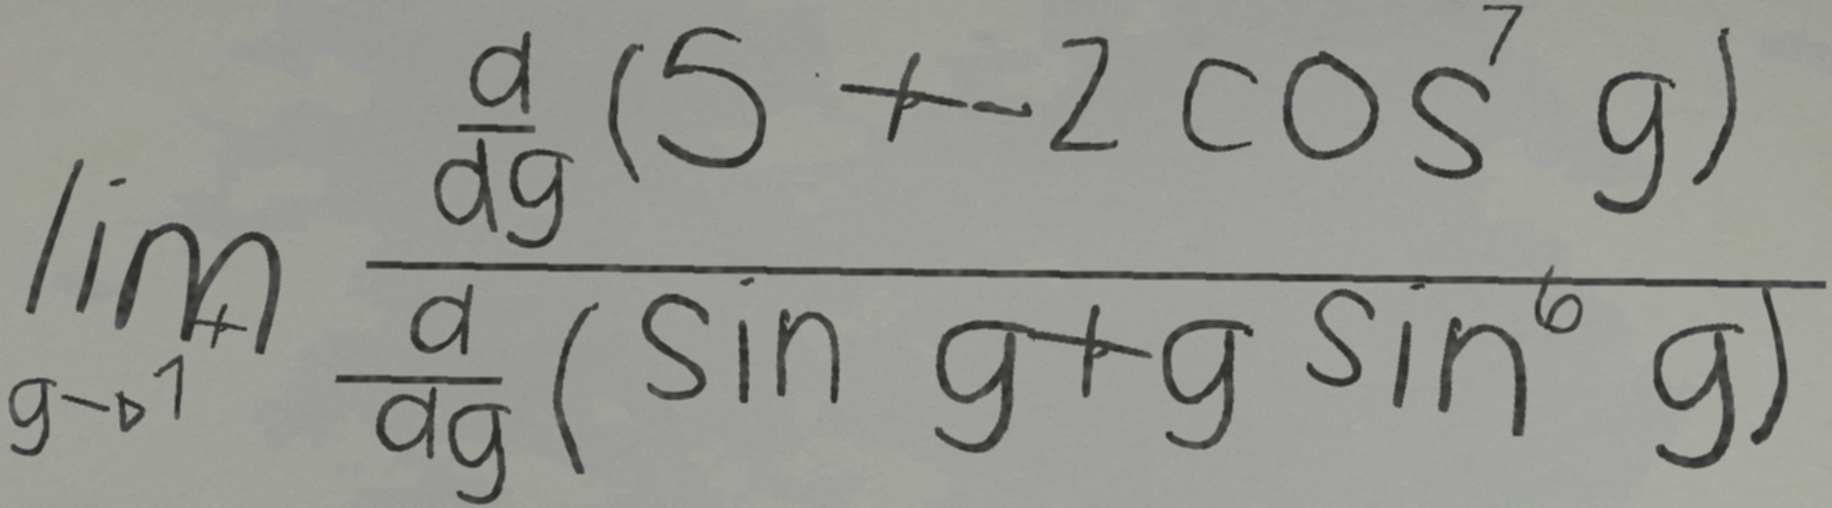 \lim_{g \to 1^+} \frac{\frac{d}{dg}(5 + -2\cos^7 g)}{\frac{d}{dg}(\sin g + g \sin^6 g)}